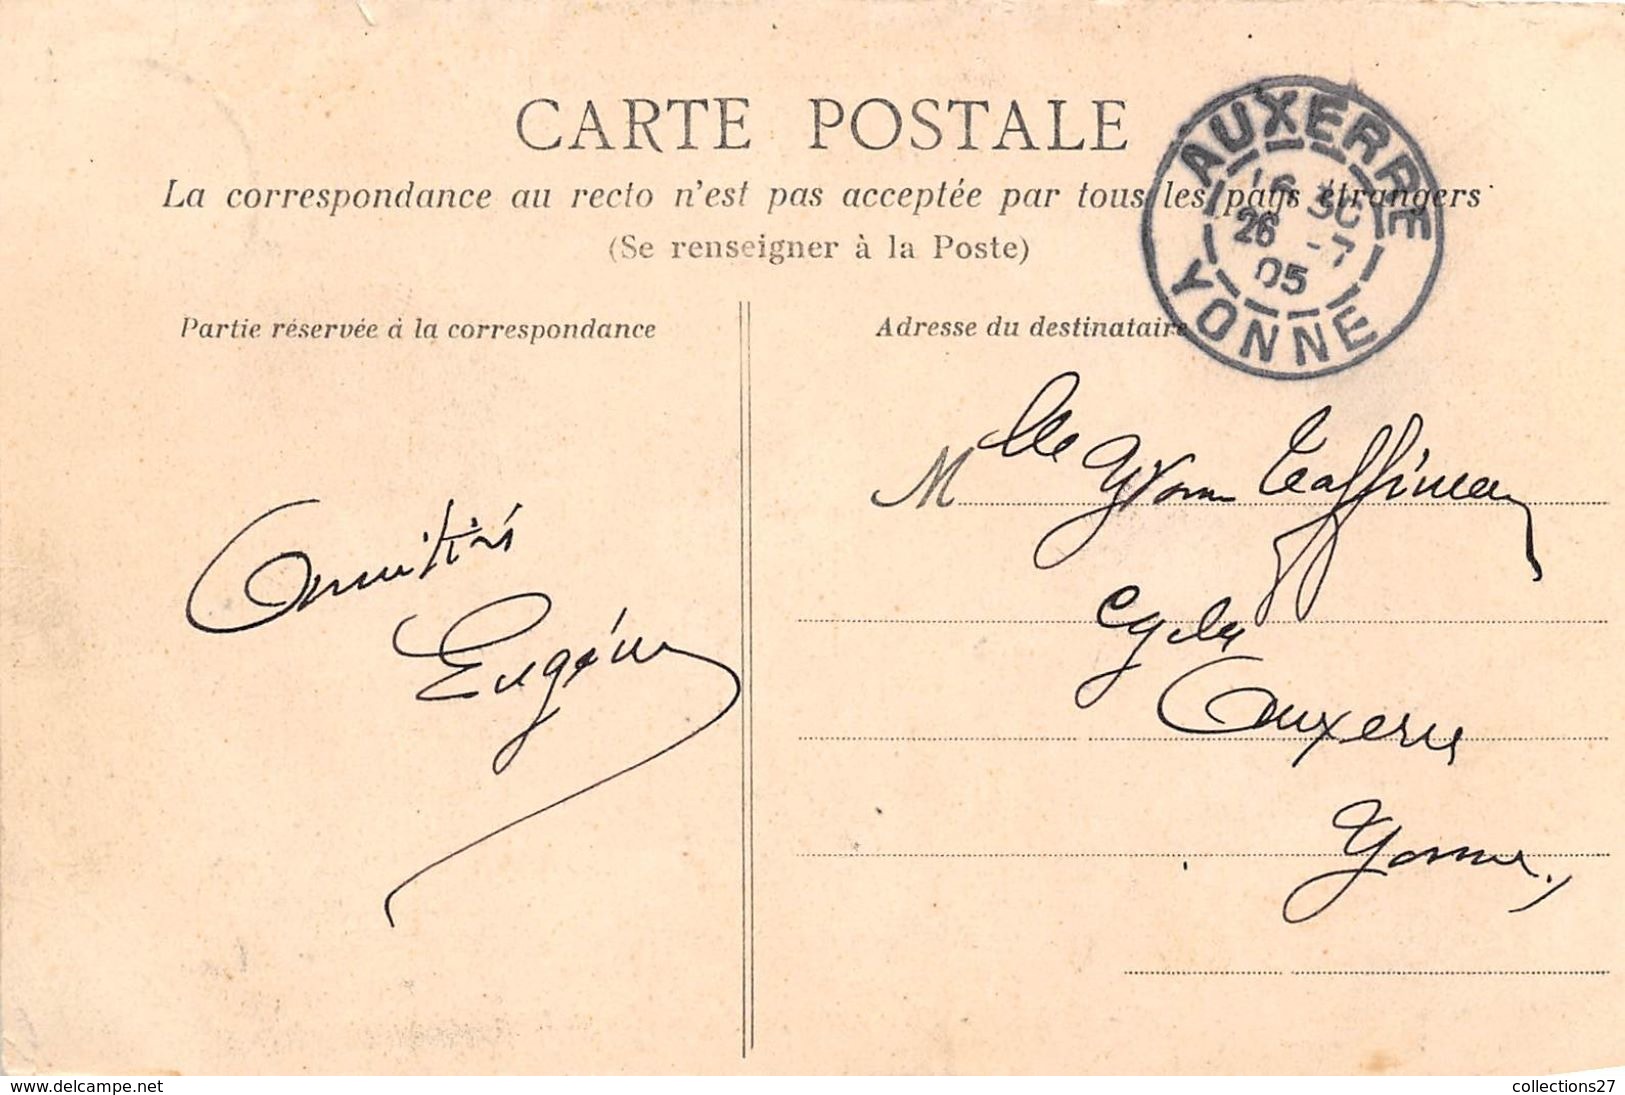 CARTE POSTALE
La correspondance au recto n'est pas acceptée par tous les pays étrangers
(Se renseigner à la Poste)
AUXERRE
16 30
26 -7
05
YONNE
Partie réservée à la correspondance
Adresse du destinataire
Mlle Yvonne
Cycles
Auxerre
Yonne.
Amitiés
Eugène
www.delcampe.net
collections27